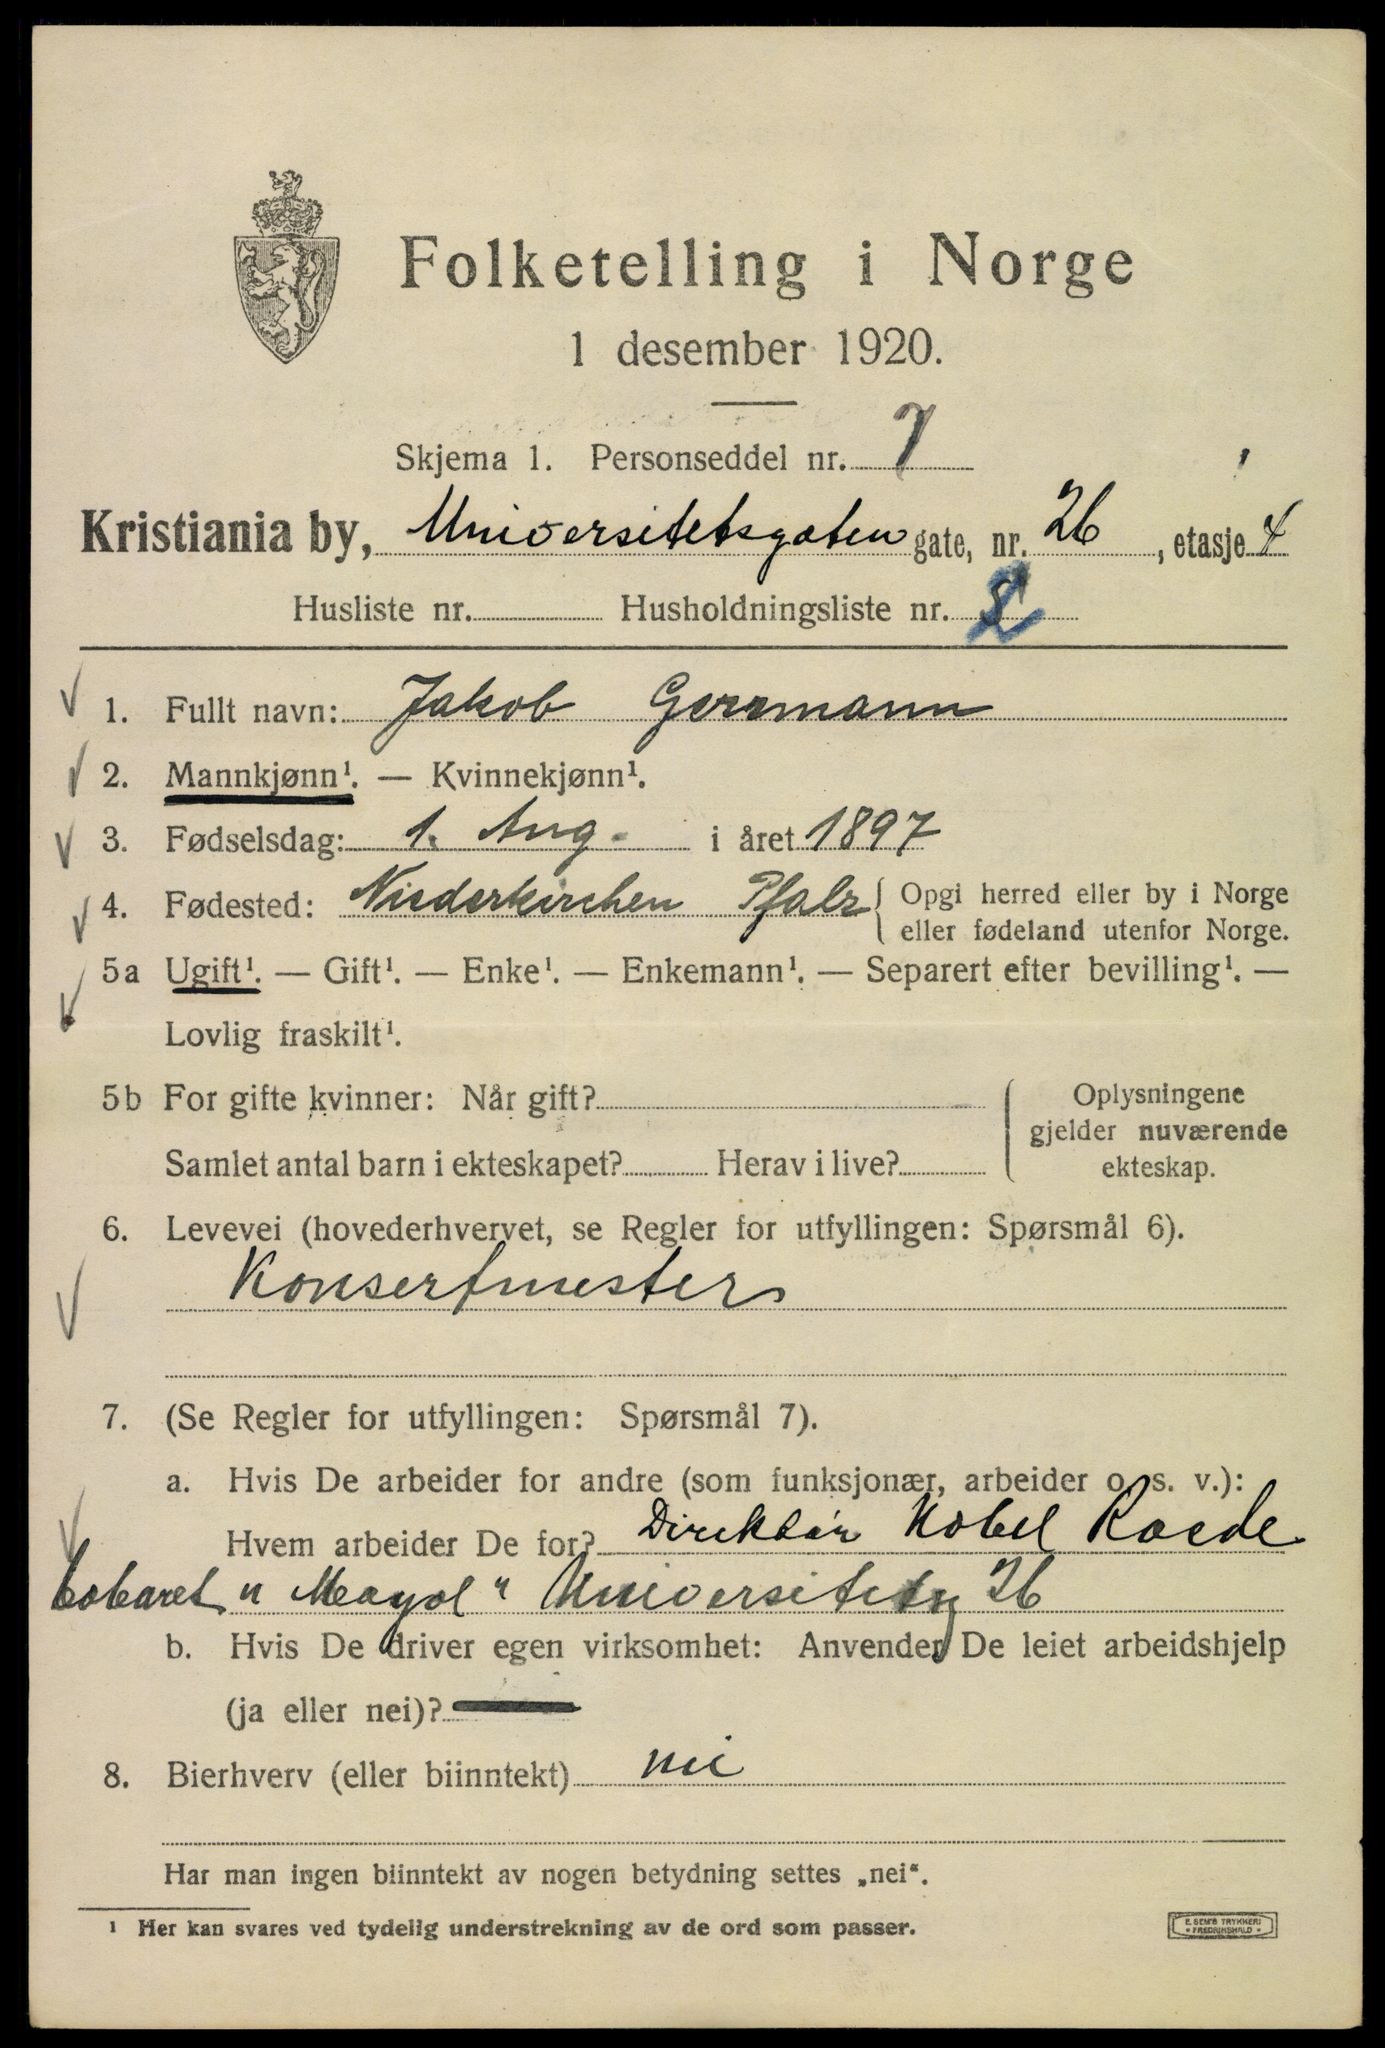 Folketelling i Norge
1 desember 1920.
Skjema 1. Personseddel nr. 7
Kristiania by, Universitetsgaten gate, nr. 26, etasje 4
Husliste nr. Husholdningsliste nr. 2
1. Fullt navn: Jakob Gerrmann
2. Mannkjønn¹. — Kvinnekjønn¹.
3. Fødselsdag: 1. Aug. i året 1897
4. Fødested: Niederkirchen Pfalz { Opgi herred eller by i Norge
eller fødeland utenfor Norge.
5a Ugift¹. — Gift¹. — Enke¹. — Enkemann¹. — Separert efter bevilling¹. —
Lovlig fraskilt¹.
5b For gifte kvinner: Når gift? Oplysningene
gjelder nuværende
Samlet antal barn i ekteskapet? Herav i live? ekteskap.
6. Levevei (hovederhvervet, se Regler for utfyllingen: Spørsmål 6).
Konsertmester
7. (Se Regler for utfyllingen: Spørsmål 7).
a. Hvis De arbeider for andre (som funksjonær, arbeider o. s. v.):
Hvem arbeider De for? Direktør Nobel Roede
Cabaret „ Mayol “ Universitetsg 26
b. Hvis De driver egen virksomhet: Anvender De leiet arbeidshjelp
(ja eller nei)?
8. Bierhverv (eller biinntekt) nei
Har man ingen biinntekt av nogen betydning settes „nei“.
¹ Her kan svares ved tydelig understrekning av de ord som passer.
E. SEM'S TRYKKERI
FREDRIKSHALD